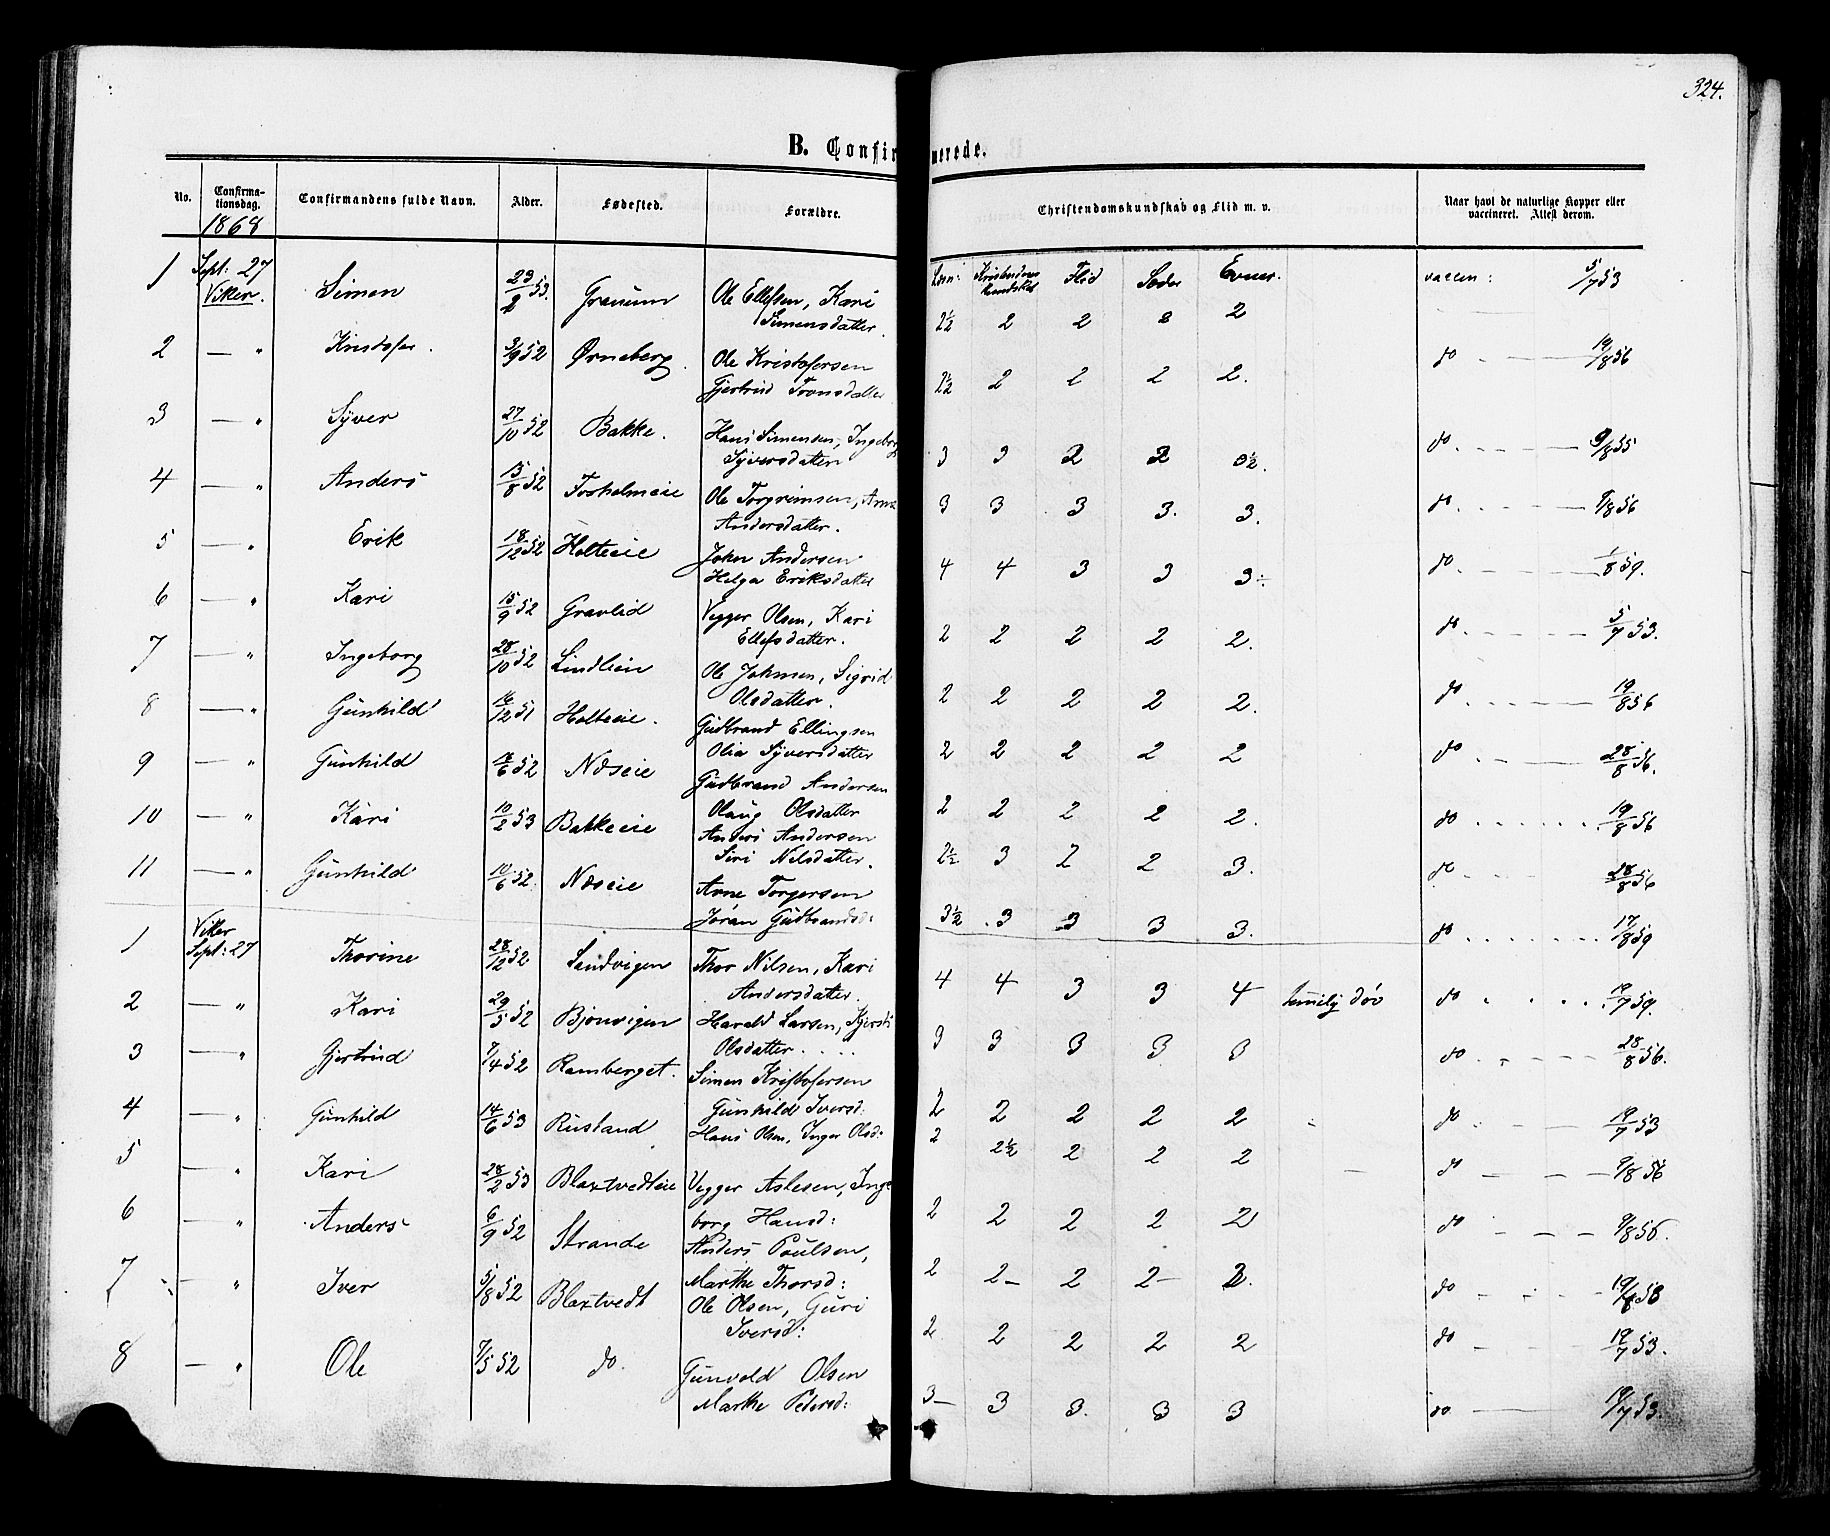 324.
B. Confirmerede.
No. Confirmationsdag. Confirmandens fulde Navn. Alder. Fødested. Forældre. Christendomskundskab og Flid m. v. Naar havt de naturlige Kopper eller vaccineret. Attest derom.
1868
1 Sept: 27 Viker. Simen 23/2 53. Ole Ellefsen, Kari Simensdatter. Læsn: Flid Sæder Evner 2½ 2 2 2 2 vaccin: 5/7 53
2 — " Kristofer. 3/9 52 Ørneberg. Ole Kristofersen Gjertrud Tronsdatter 2½ 2 2 2 2. do 19/8 56
3 — " Syver 27/10 52 Bakke. Hans Simensen, Ingeborg Syversdatter 3 3 2 2 3½. do 9/8 55
4 — " Anders 15/8 52 Fosholmeie Ole Torgrimsen, Anne Andersdatter. 3 3 3 3. 3. do 9/8 56
5 — " Erik 18/12 52 Holteeie Johen Andersen Helga Eriksdatter 4 4 3 3 3 do 1/8 59.
6 — " Kari 15/9 52 Gravlid Vegger Olsen, Kari Ellefsdatter. 2 2 2 2 2. do 5/7 53.
7 — " Ingeborg 28/10 52 Lindleie Ole Johnsen, Sigrid Olsdatter. 2 2 2 2 2. do 19/8 56
8 — " Gunhild 16/12 51 Holteeie. Gudbrand Ellingsen Olia Syversdatter 2 2 2 2 2 do 28/8 56.
9 — " Gunhild 52 Næseie Gudbrand Andersen Olaug Olsdatter 2 2 2 2 2. do 19/8 56
10 — " Kari 10/2 53 Bakkeeie Anders Andersen Siri Nilsdatter. 2½ 3 2 2 3. do 28/8 56
11 — " Gunhild 10/6 52. Næseie Arne Torgersen Jøran Gudbrandsd: 3½ 3 3 3 3. do 17/8 59
1 Viker Sept: 27 Thorine 28/12 52 Sandvigen Thor Nilsen, Kari Andersdatter. 4 4 3 3 4 temelig døv do 19/7 59.
2 — " Kari 29/5 52 Bjonvigen Harald Larsen, Kjersti Olsdatter. 3 3 3 3 3 do 28/8 56.
3 — " Gjertrud 7/4 52 Ramberget. Simen Kristofersen Gunhild Iversd: 2 2 2 2 2 do 19/7 53
4 — " Gunhild 14/6 53 Rustand Hans Olsen, Inger Olsd: 2 2½ 2 2 2 do 9/8 56
5 — " Kari 28/2 53 Blaxtvedteie Vegger Aslesen, Ingeborg Hansd: 2 2 2 2 2 do 9/8 56.
6 — " Anders 6/9 52 Strande Anders Poulsen, Marthe Thorsd: 2 2 2 2 2. do 19/8 58
7 — " Iver 5/8 52 Blaxtvedt Ole Olsen, Guri Iversd: 2 2 2 2 2 do 19/7 53.
8 — " Ole 7/5 52 do. Gunvold Olsen Marthe Pedersd: 3 3 3. 3 3 do 19/7 53.